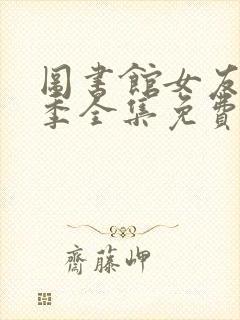 圖書館女友
季全集免費
齋藤岬